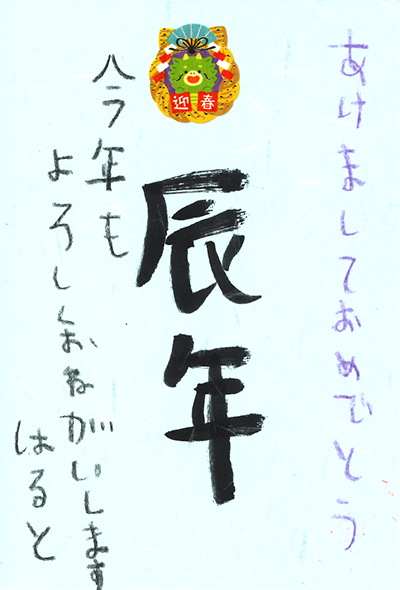 あけましておめでとう
迎春
辰年
今年も
よろしくおねがいします
はると